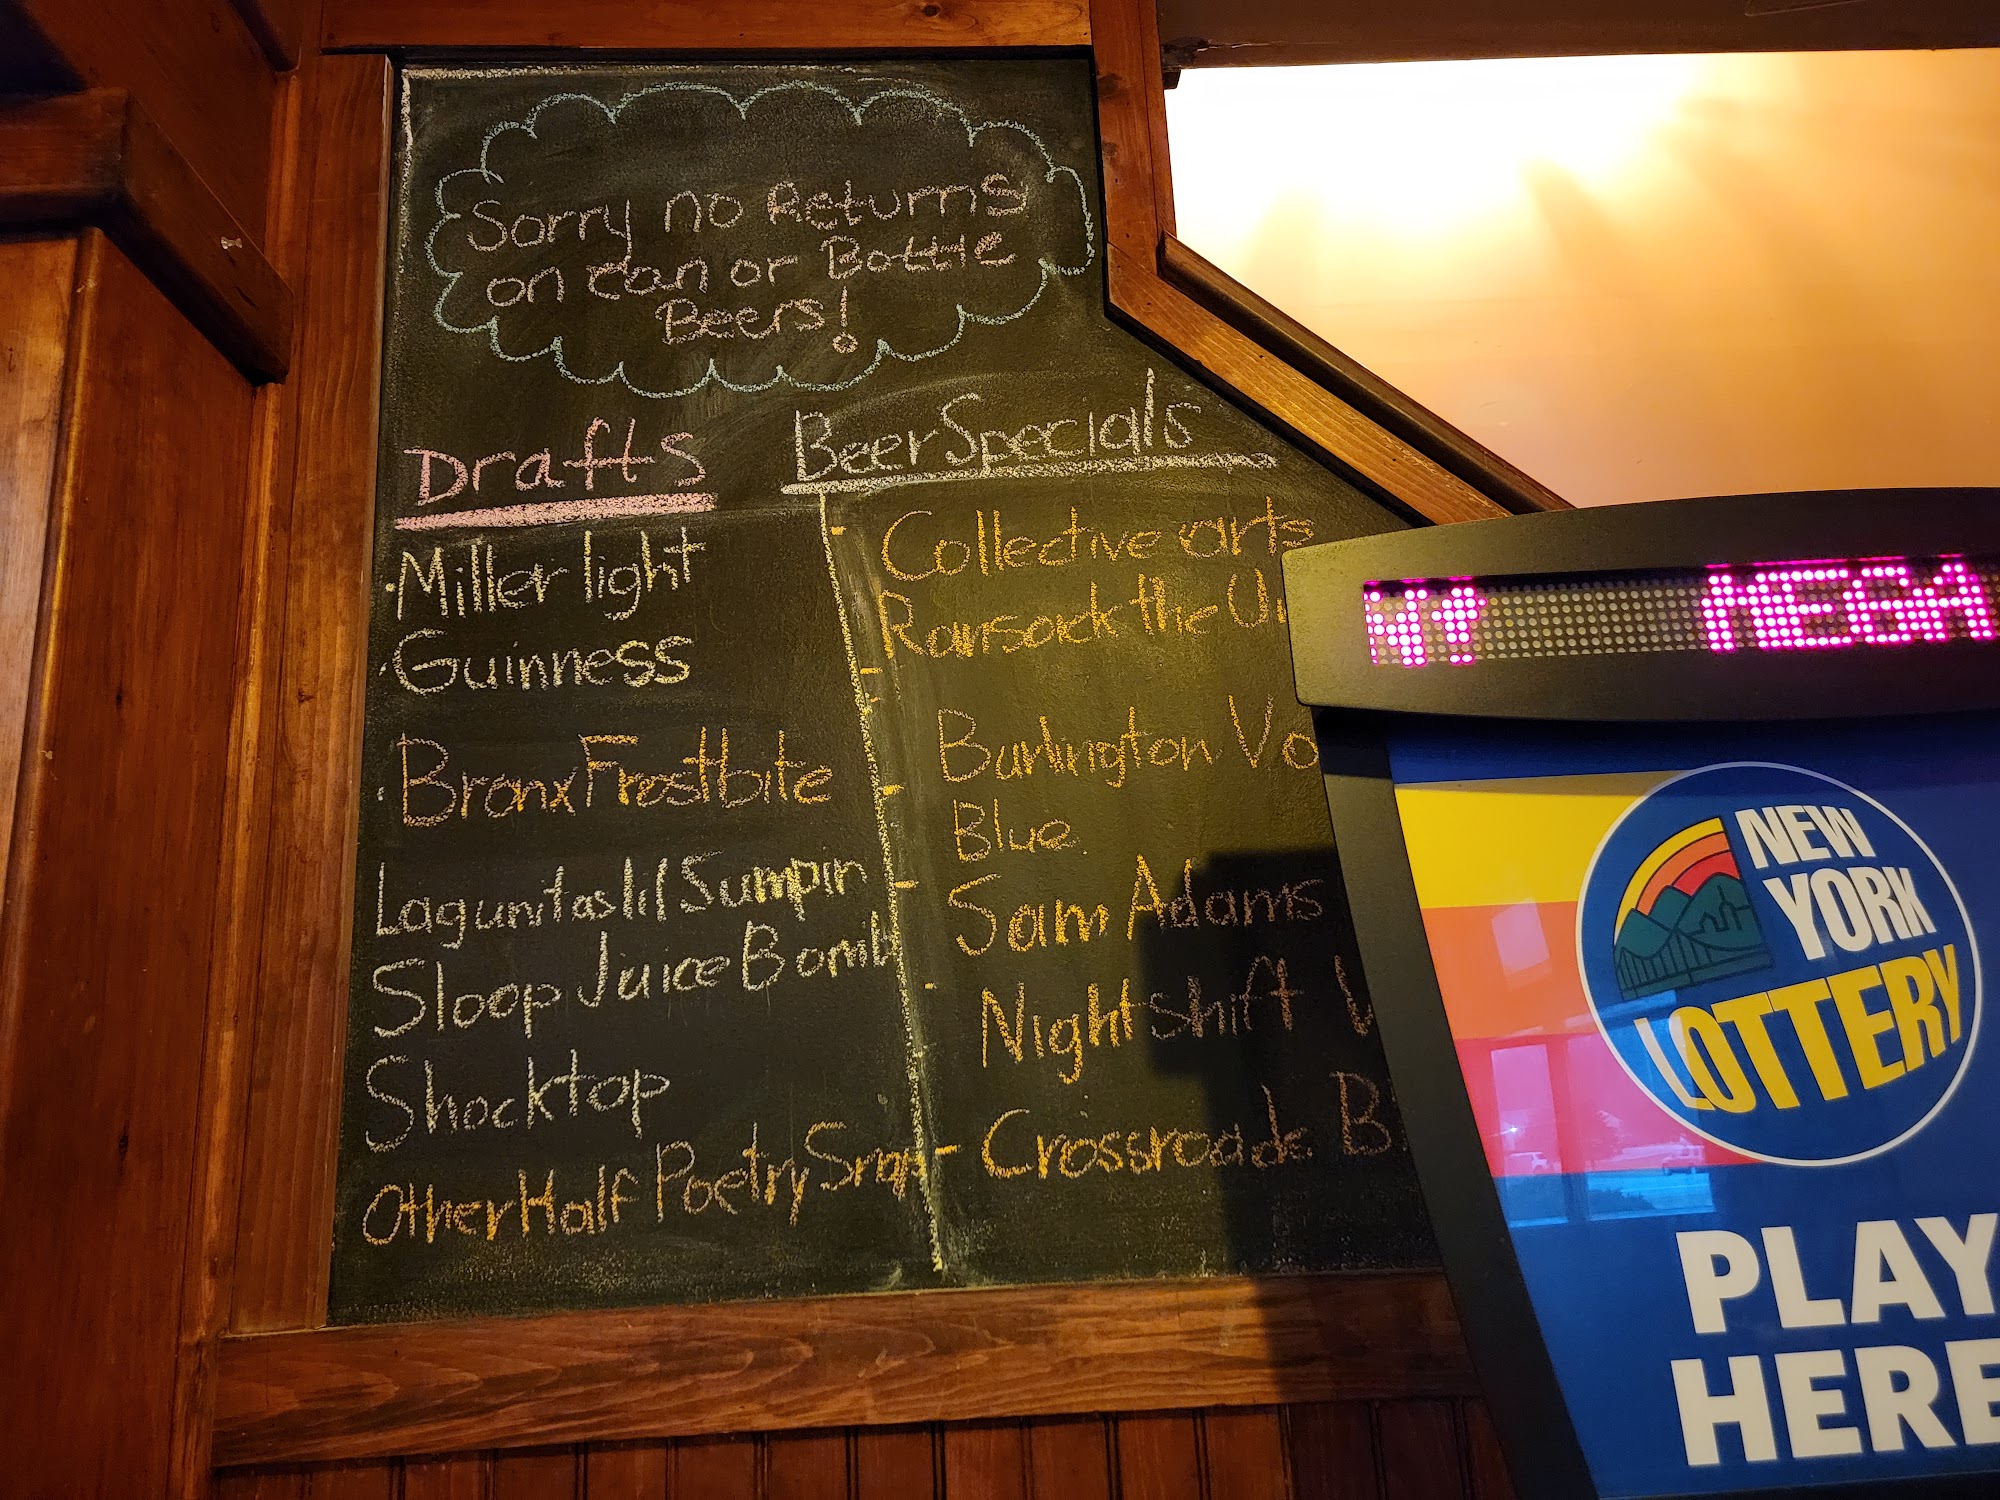 Sorry no Returns
on can or Bottle
Beers!
Drafts
Miller light
Guinness
Bronx Frostbite
Lagunitas lil Sumpin
Sloop Juice Bomb
Shocktop
Other Half Poetry Snap
Beer Specials
Collective arts
Ransack the
Burlington
Blue
Sam Adams
Nightshift
Crossroads
MEGA
NEW
YORK
LOTTERY
PLAY
HERE